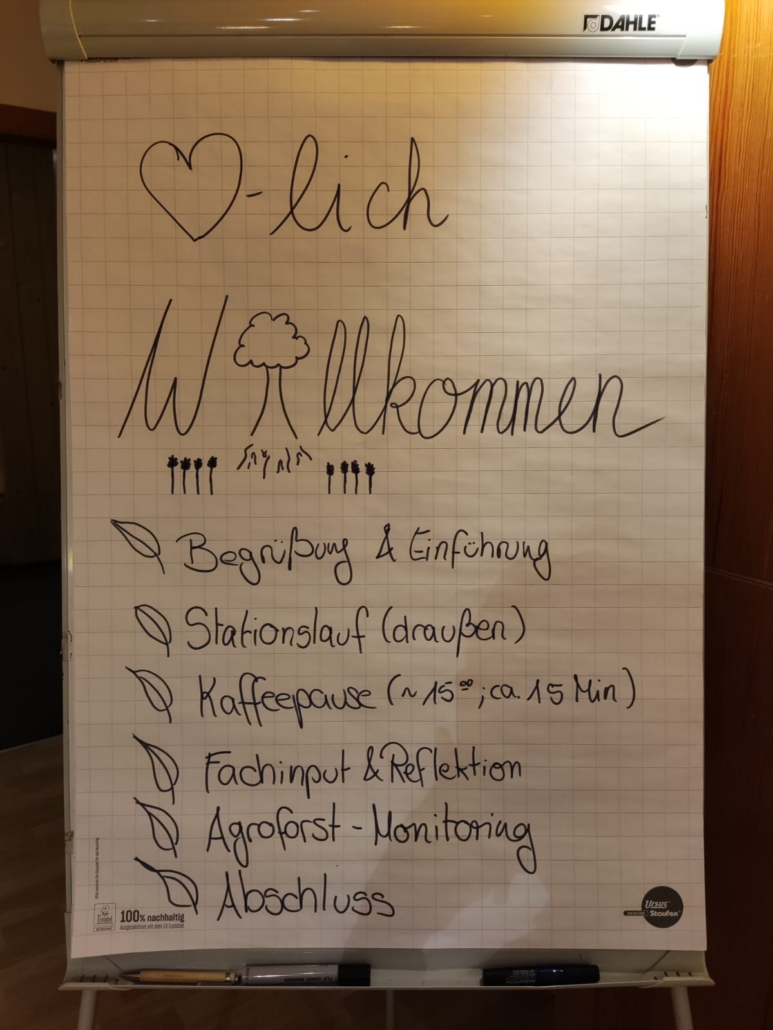 DAHLE
-lich
W llkommen
Begrüßung & Einführung
Stationslauf (draußen)
Kaffeepause (~15⁰⁰; ca. 15 Min)
Fachinput & Reflektion
Agroforst-Monitoring
Abschluss
100% nachhaltig
Ursus
Staufen